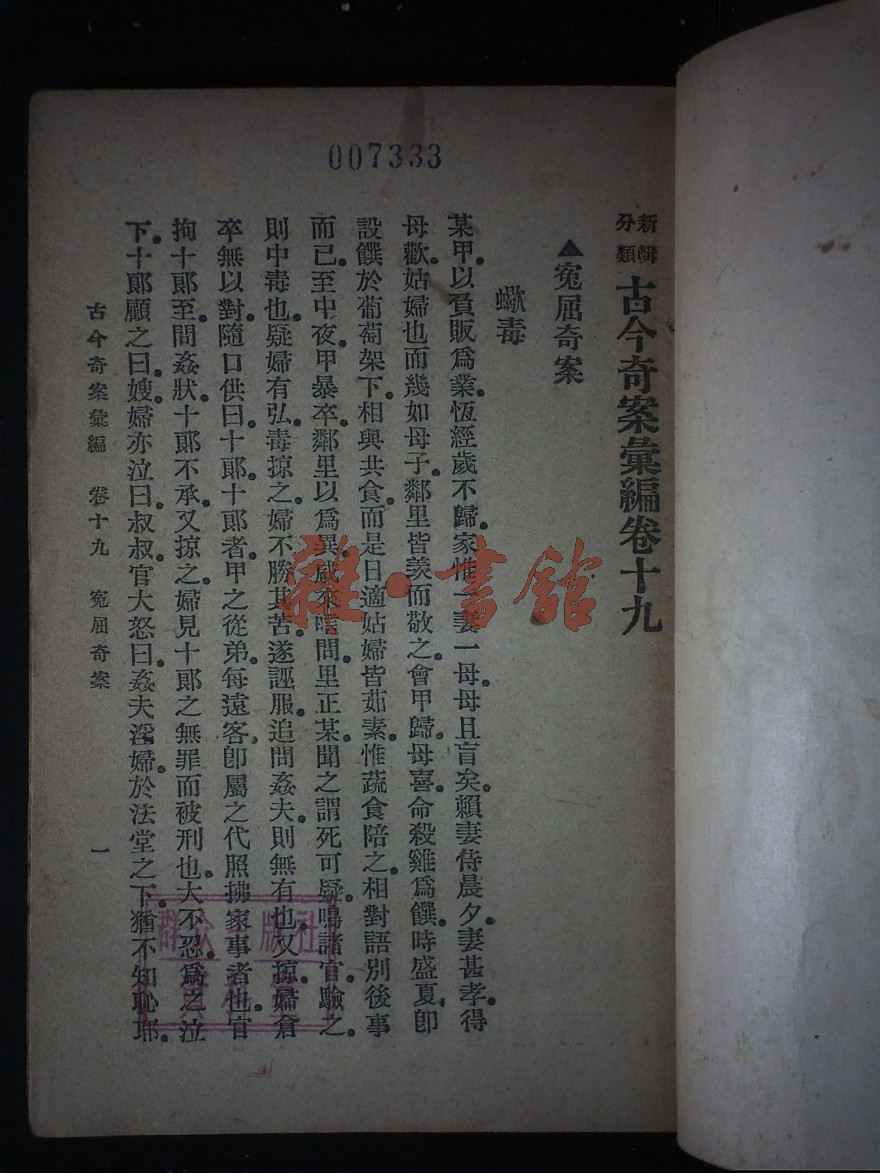 007333
新輯分類 古今奇案彙編卷十九
▲冤屈奇案
蠍毒
某甲。以負販爲業。恆經歲不歸。家惟一妻一母。母且盲矣。賴妻侍晨夕。妻甚孝。得
母歡。姑婦也而幾如母子。鄰里皆羨而敬之。會甲歸。母喜。命殺雞爲饌。時盛夏。卽
設饌於葡萄架下。相與共食。而是日適姑婦皆茹素。惟蔬食陪之。相對語別後事
而已。至中夜。甲暴卒。鄰里以爲異。咸來 問。里正某聞之。謂死可疑。鳴諸官。驗之。
則中毒也。疑婦有弘。毒掠之。婦不勝其苦。遂誣服。追問姦夫。則無有也。又掠。婦倉
卒無以對。隨口供曰。十郞。十郞者。甲之從弟。每遠客。卽屬之代照拂家事者也。官
拘十郞至。問姦狀。十郞不承。又掠之。婦見十郞之無罪而被刑也。大不忍。爲之泣
下。十郞顧之曰。嫂。婦亦泣曰。叔叔。官大怒曰。姦夫淫婦。於法堂之下。猶不知恥耶。
古今奇案彙編 卷十九 冤屈奇案 一
雜·書館
群众出版社